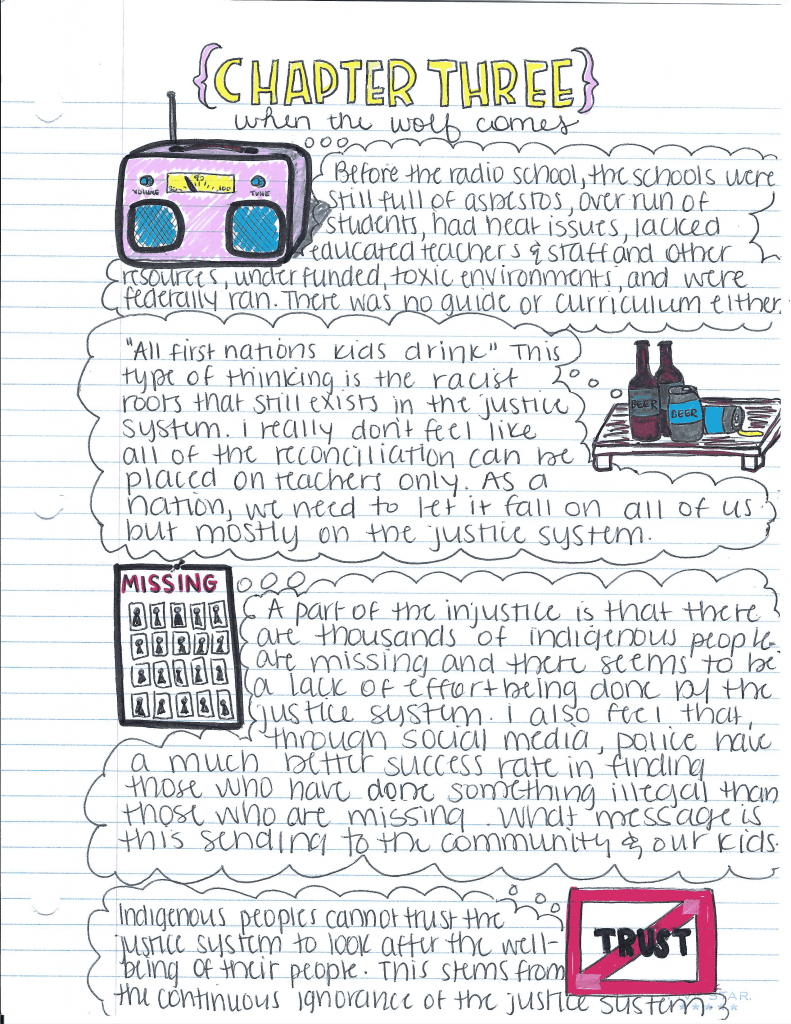 {CHAPTER THREE}
when the wolf comes
VOLUME
TUNE
Before the radio school, the schools were
still full of asbestos, over run of
students, had heat issues, lacked
educated teachers & staff and other
resources, underfunded, toxic environments, and were
federally ran. There was no guide or curriculum either.
"All first nations kids drink" This
type of thinking is the racist
roots that still exists in the justice
system. I really don't feel like
all of the reconciliation can be
placed on teachers only. As a
nation, we need to let it fall on all of us
but mostly on the justice system.
BEER
BEER
MISSING
A part of the injustice is that there
are thousands of indigenous people
are missing and there seems to be
a lack of effort being done by the
justice system. I also feel that,
through social media, police have
a much better success rate in finding
those who have done something illegal than
those who are missing. What message is
this sending to the community & our kids.
Indigenous peoples cannot trust the
justice system to look after the well-
being of their people. This stems from
the continuous ignorance of the justice system
TRUST
STAR.